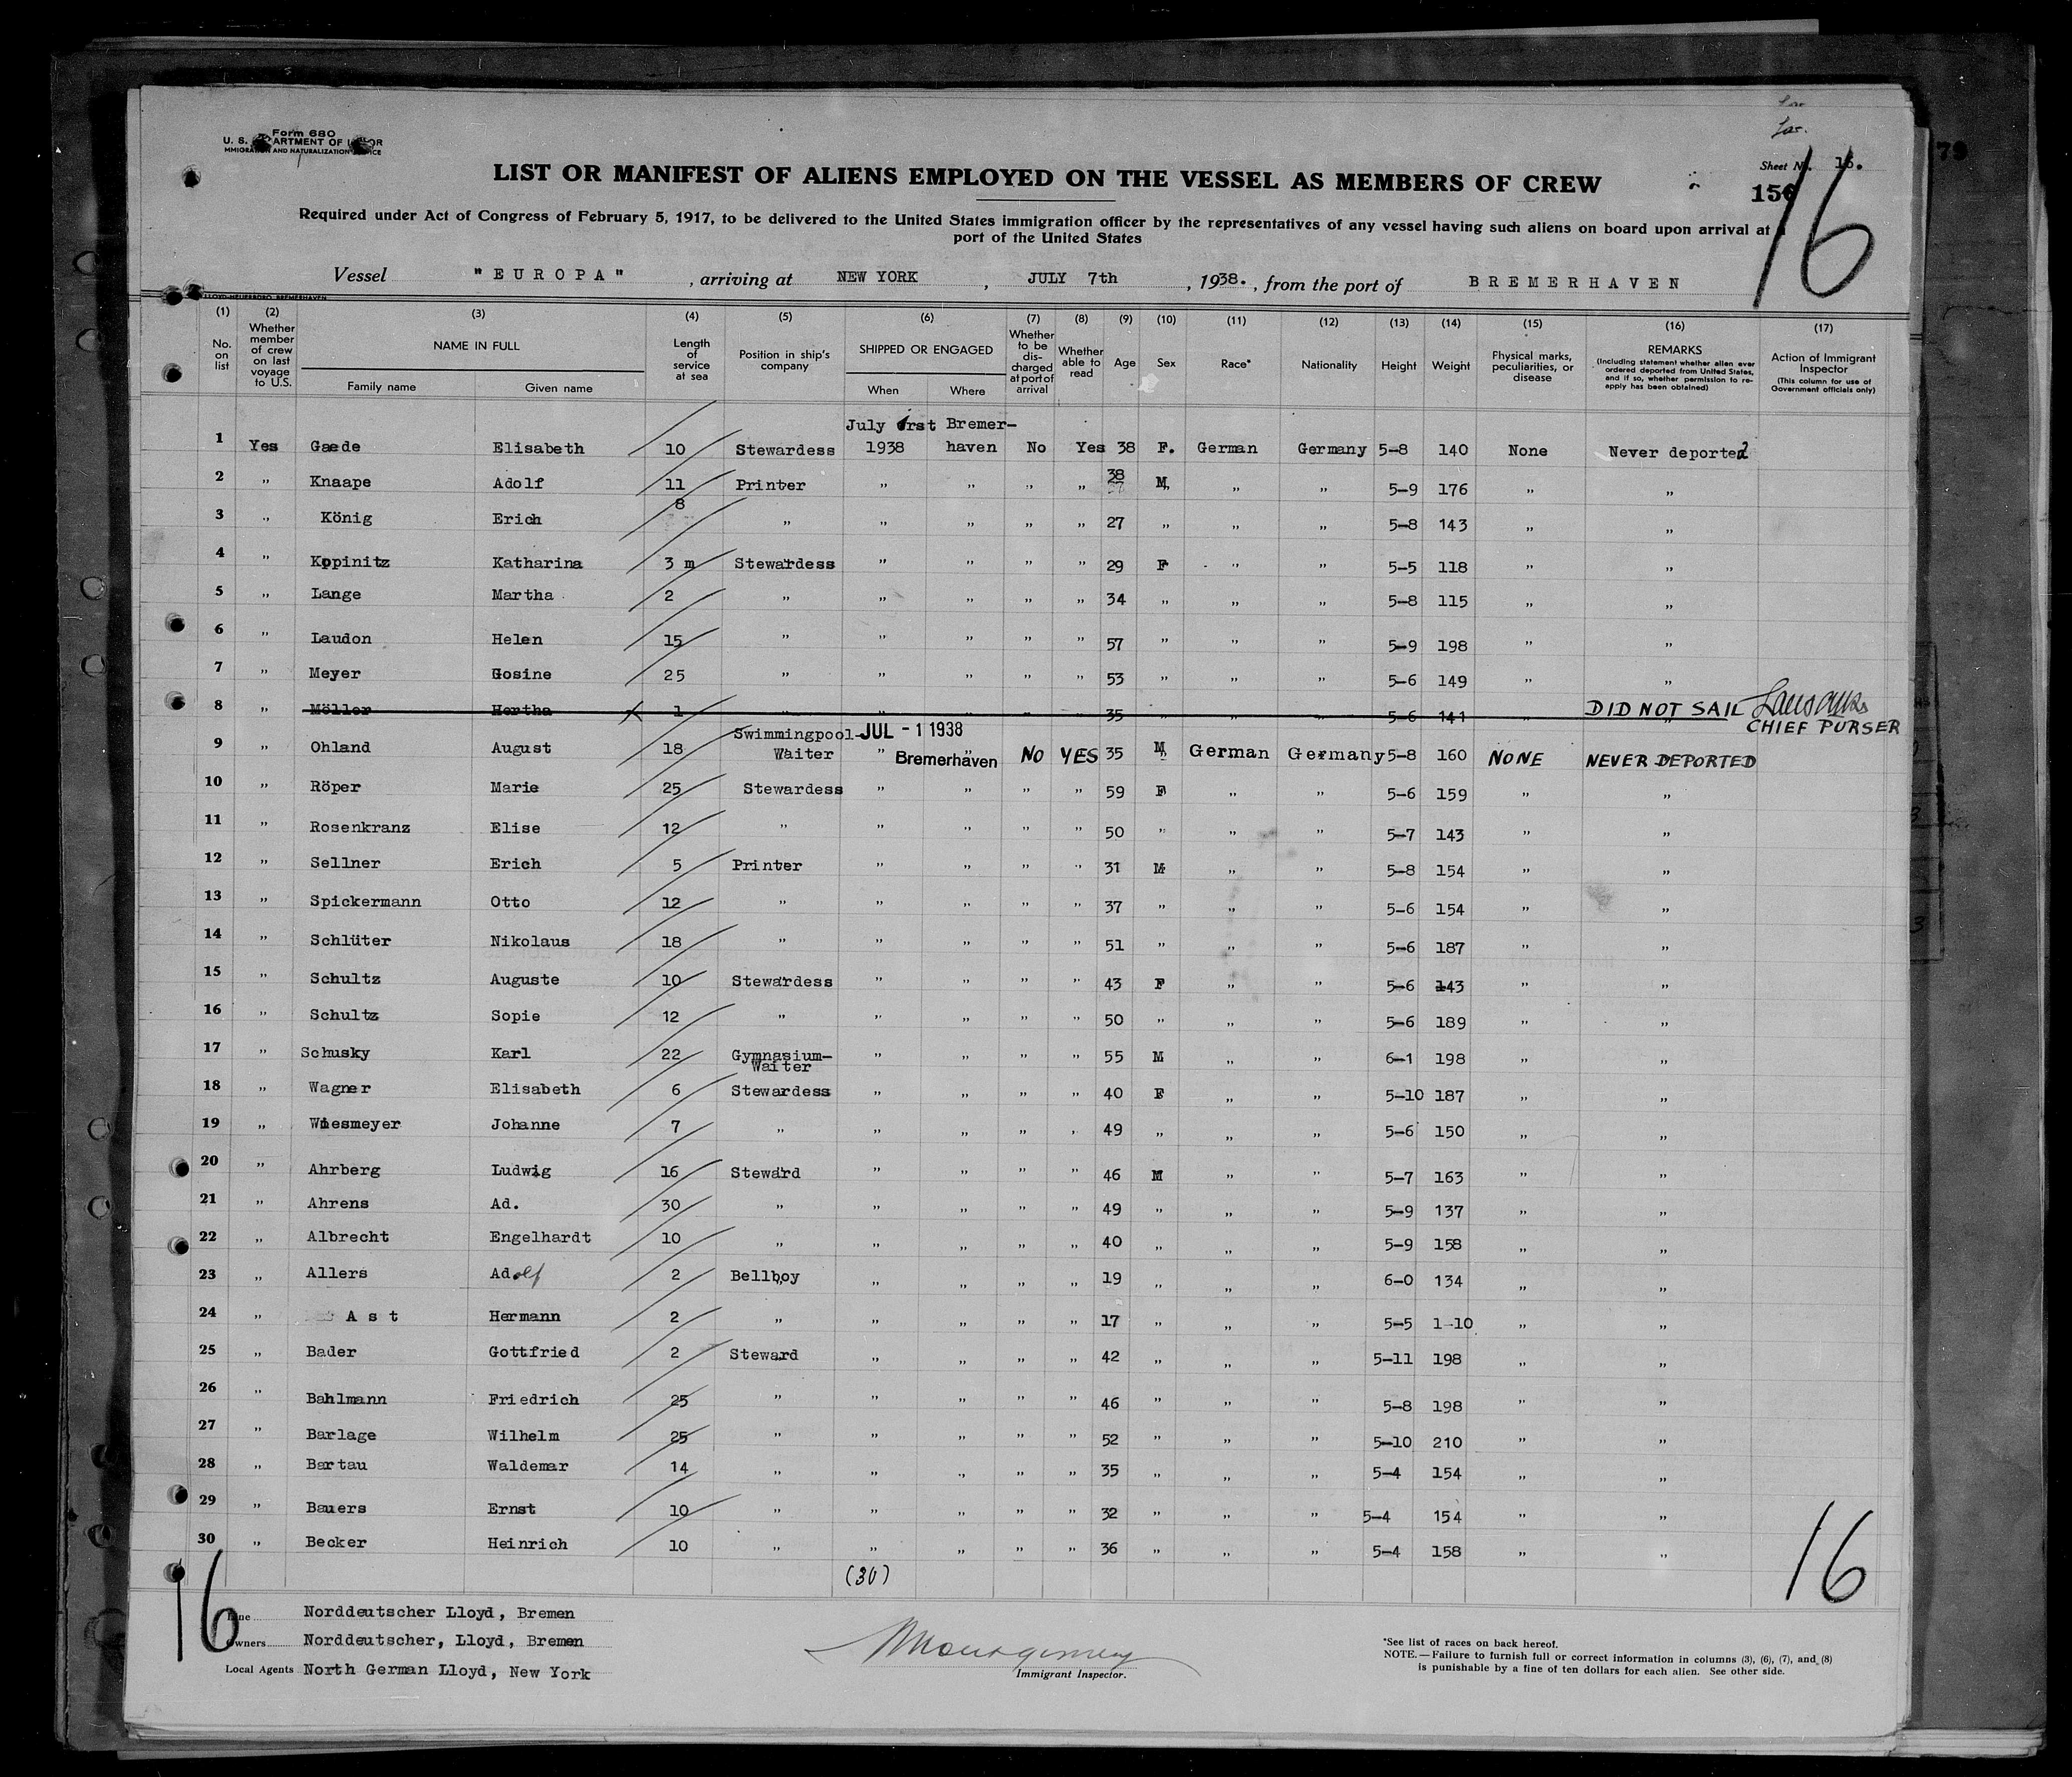 Form 680
U. S. DEPARTMENT OF LABOR
IMMIGRATION AND NATURALIZATION SERVICE
Sheet No. 16.
156
16
LIST OR MANIFEST OF ALIENS EMPLOYED ON THE VESSEL AS MEMBERS OF CREW
Required under Act of Congress of February 5, 1917, to be delivered to the United States immigration officer by the representatives of any vessel having such aliens on board upon arrival at a
port of the United States
Vessel "EUROPA", arriving at NEW YORK, JULY 7th, 1938., from the port of BREMERHAVEN
(1) No. on list
(2) Whether member of crew on last voyage to U.S.
(3) NAME IN FULL Family name Given name
(4) Length of service at sea
(5) Position in ship's company
(6) SHIPPED OR ENGAGED When Where
(7) Whether to be discharged at port of arrival
(8) Whether able to read
(9) Age
(10) Sex
(11) Race*
(12) Nationality
(13) Height
(14) Weight
(15) Physical marks, peculiarities, or disease
(16) REMARKS (Including statement whether alien ever ordered deported from United States, and if so, whether permission to re-apply has been obtained)
(17) Action of Immigrant Inspector (This column for use of Government officials only)
1 Yes Gaede Elisabeth 10 Stewardess July 1rst 1938 Bremer-haven No Yes 38 F. German Germany 5-8 140 None Never deported
2 " Knaape Adolf 11 Printer " " " " 38 M " " 5-9 176 " "
3 " König Erich 8 " " " " " 27 " " " 5-8 143 " "
4 " Koppinitz Katharina 3 m Stewardess " " " " 29 F " " 5-5 118 " "
5 " Lange Martha 2 " " " " " 34 " " " 5-8 115 " "
6 " Laudon Helen 15 " " " " " 57 " " " 5-9 198 " "
7 " Meyer Gosine 25 " " " " " 53 " " " 5-6 149 " "
8 " Möller Hertha 1 " " " " " 35 " " " 5-6 141 " DID NOT SAIL
CHIEF PURSER
9 " Ohland August 18 Swimmingpool-Waiter JUL - 1 1938 " Bremerhaven NO YES 35 M German Germany 5-8 160 NONE NEVER DEPORTED
10 " Röper Marie 25 Stewardess " " " " 59 F " " 5-6 159 " "
11 " Rosenkranz Elise 12 " " " " " 50 " " " 5-7 143 " "
12 " Sellner Erich 5 Printer " " " " 31 M " " 5-8 154 " "
13 " Spickermann Otto 12 " " " " " 37 " " " 5-6 154 " "
14 " Schlüter Nikolaus 18 " " " " " 51 " " " 5-6 187 " "
15 " Schultz Auguste 10 Stewardess " " " " 43 F " " 5-6 143 " "
16 " Schultz Sopie 12 " " " " " 50 " " " 5-6 189 " "
17 " Schusky Karl 22 Gymnasium-Waiter " " " " 55 M " " 6-1 198 " "
18 " Wagner Elisabeth 6 Stewardess " " " " 40 F " " 5-10 187 " "
19 " Wiesmeyer Johanne 7 " " " " " 49 " " " 5-6 150 " "
20 " Ahrberg Ludwig 16 Steward " " " " 46 M " " 5-7 163 " "
21 " Ahrens Ad. 30 " " " " " 49 " " " 5-9 137 " "
22 " Albrecht Engelhardt 10 " " " " " 40 " " " 5-9 158 " "
23 " Allers Adolf 2 Bellboy " " " " 19 " " " 6-0 134 " "
24 " Ast Hermann 2 " " " " " 17 " " " 5-5 1-10 " "
25 " Bader Gottfried 2 Steward " " " " 42 " " " 5-11 198 " "
26 " Bahlmann Friedrich 25 " " " " " 46 " " " 5-8 198 " "
27 " Barlage Wilhelm 25 " " " " " 52 " " " 5-10 210 " "
28 " Bartau Waldemar 14 " " " " " 35 " " " 5-4 154 " "
29 " Bauers Ernst 10 " " " " " 32 " " " 5-4 154 " "
30 " Becker Heinrich 10 " " " " " 36 " " " 5-4 158 " "
(30)
16
16
Line Norddeutscher Lloyd, Bremen
Owners Norddeutscher, Lloyd, Bremen
Local Agents North German Lloyd, New York
Montgomery
Immigrant Inspector.
*See list of races on back hereof.
NOTE.—Failure to furnish full or correct information in columns (3), (6), (7), and (8)
is punishable by a fine of ten dollars for each alien. See other side.